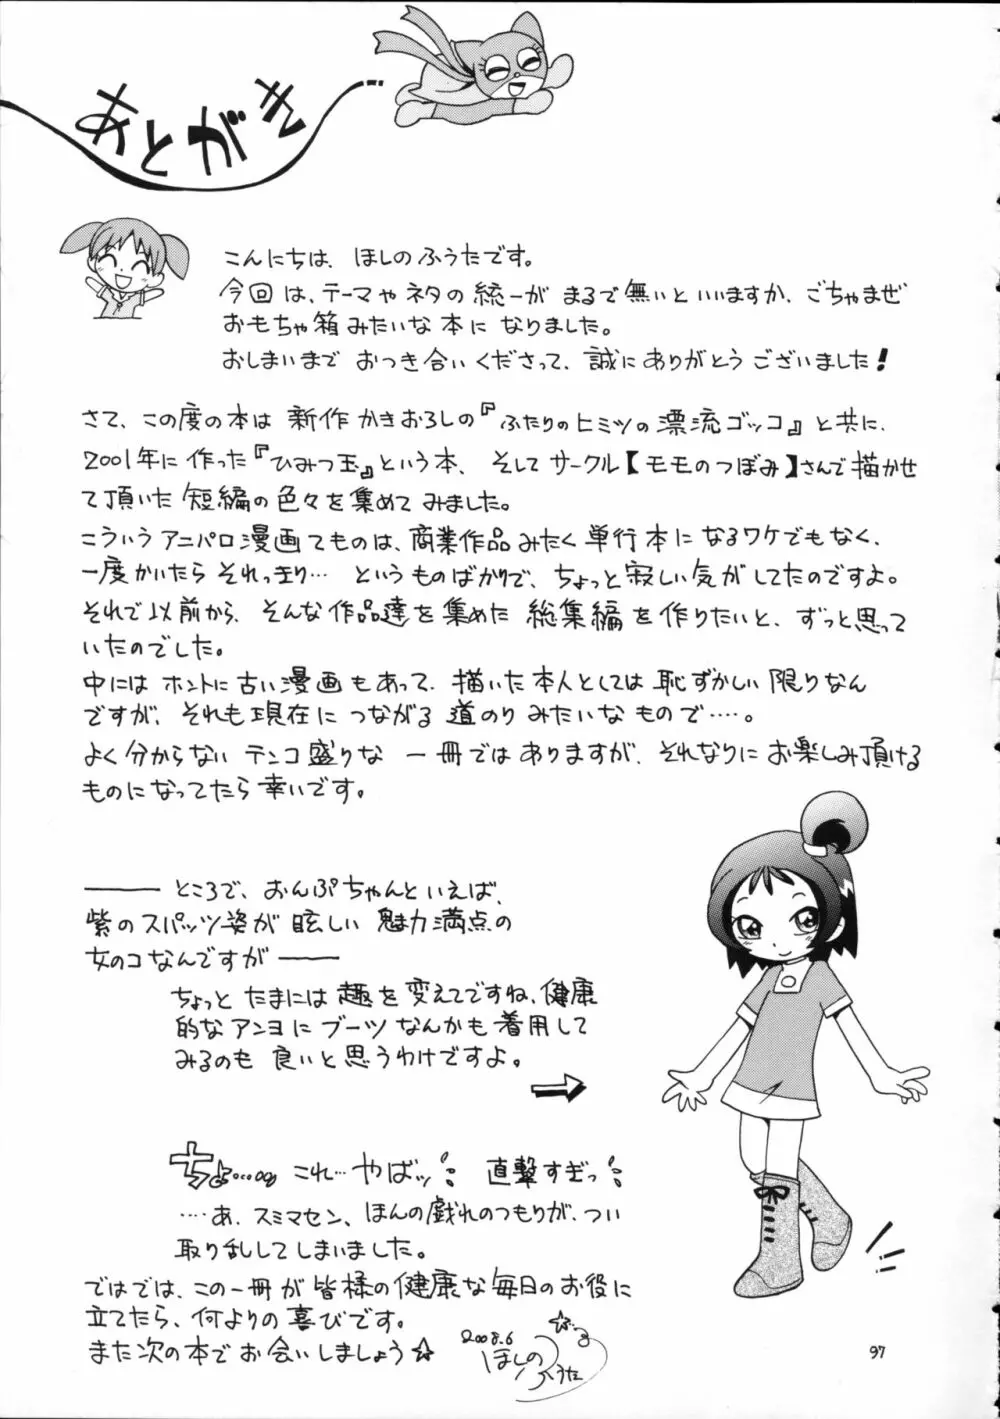 あとがき
こんにちは、ほしのふうたです。
今回は、テーマやネタの統一がまるで無いといいますか、ごちゃまぜ
おもちゃ箱みたいな本になりました。
おしまいまでおつき合いくださって、誠にありがとうございました!
さて、この度の本は新作かきおろしの『ふたりのヒミツの漂流ゴッコ』と共に、
2001年に作った『ひみつ玉』という本、そしてサークル【モモのつぼみ】さんで描かせ
て頂いた短編の色々を集めてみました。
こういうアニパロ漫画てものは、商業作品みたく単行本になるワケでもなく、
一度かいたらそれっきり…というものばかりで、ちょっと寂しい気がしてたのですよ。
それで以前から、そんな作品達を集めた総集編を作りたいと、ずっと思って
いたのでした。
中にはホントに古い漫画もあって、描いた本人としては恥ずかしい限りなん
ですが、それも現在につながる道のりみたいなもので……。
よく分からないテンコ盛りな一冊ではありますが、それなりにお楽しみ頂ける
ものになってたら幸いです。
――ところで、おんぷちゃんといえば、
紫のスパッツ姿が眩しい魅力満点の
女のコなんですが――
ちょっとたまには趣を変えてですね、健康
的なアンヨにブーツなんかも着用して
みるのも良いと思うわけですよ。
ちょ…… これ…やばッ! 直撃すぎっ!
……あ、スミマセン、ほんの戯れのつもりが、つい
取り乱してしまいました。
ではでは、この一冊が皆様の健康な毎日のお役に
立てたら、何よりの喜びです。
また次の本でお会いしましょう☆
2008.6
ほしのふうた
97